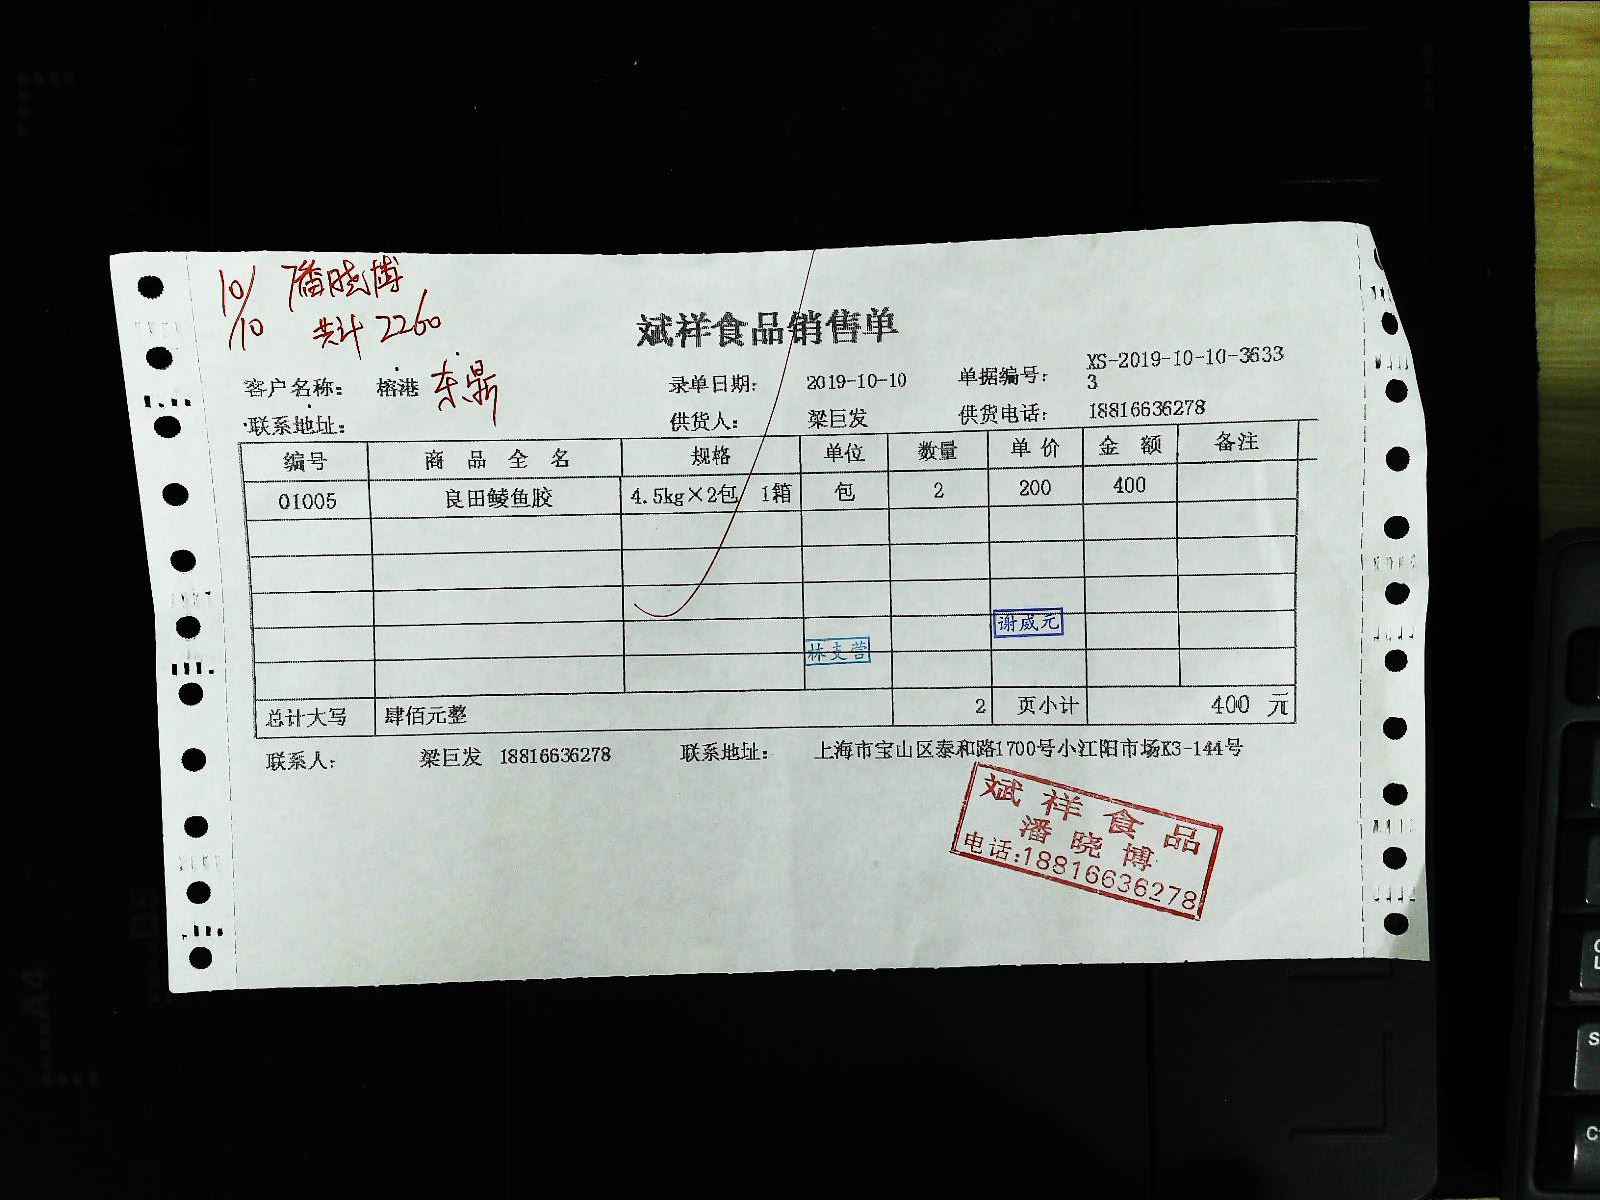 10/10 潘晓博
共计 2260
斌祥食品销售单
客户名称: 榕港 东鼎 录单日期: 2019-10-10 单据编号: XS-2019-10-10-36333
联系地址: 供货人: 梁巨发 供货电话: 18816636278
编号 商品全名 规格 单位 数量 单价 金额 备注
01005 良田鲮鱼胶 4.5kg×2包 1箱 包 2 200 400
谢威元
林支营
总计大写 肆佰元整 2 页小计 400 元
联系人: 梁巨发 18816636278 联系地址: 上海市宝山区泰和路1700号小江阳市场K3-144号
斌祥食品
潘晓博
电话:18816636278